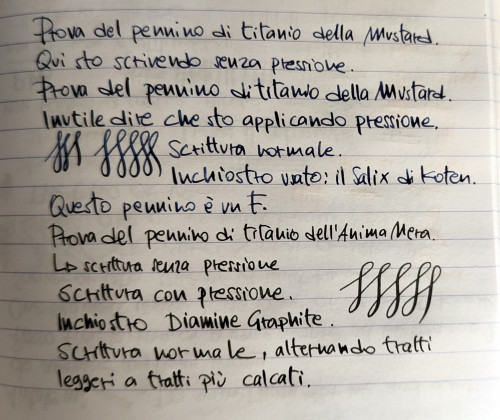 Prova del pennino di titanio della Mustard.
Qui sto scrivendo senza pressione.
Prova del pennino di titanio della Mustard.
Inutile dire che sto applicando pressione.
Scrittura normale.
Inchiostro usato: il Salix di Koten.
Questo pennino è un F.
Prova del pennino di titanio dell'Anima Mera.
↳ scrittura senza pressione
Scrittura con pressione.
Inchiostro Diamine Graphite.
Scrittura normale, alternando tratti
leggeri a tratti più calcati.